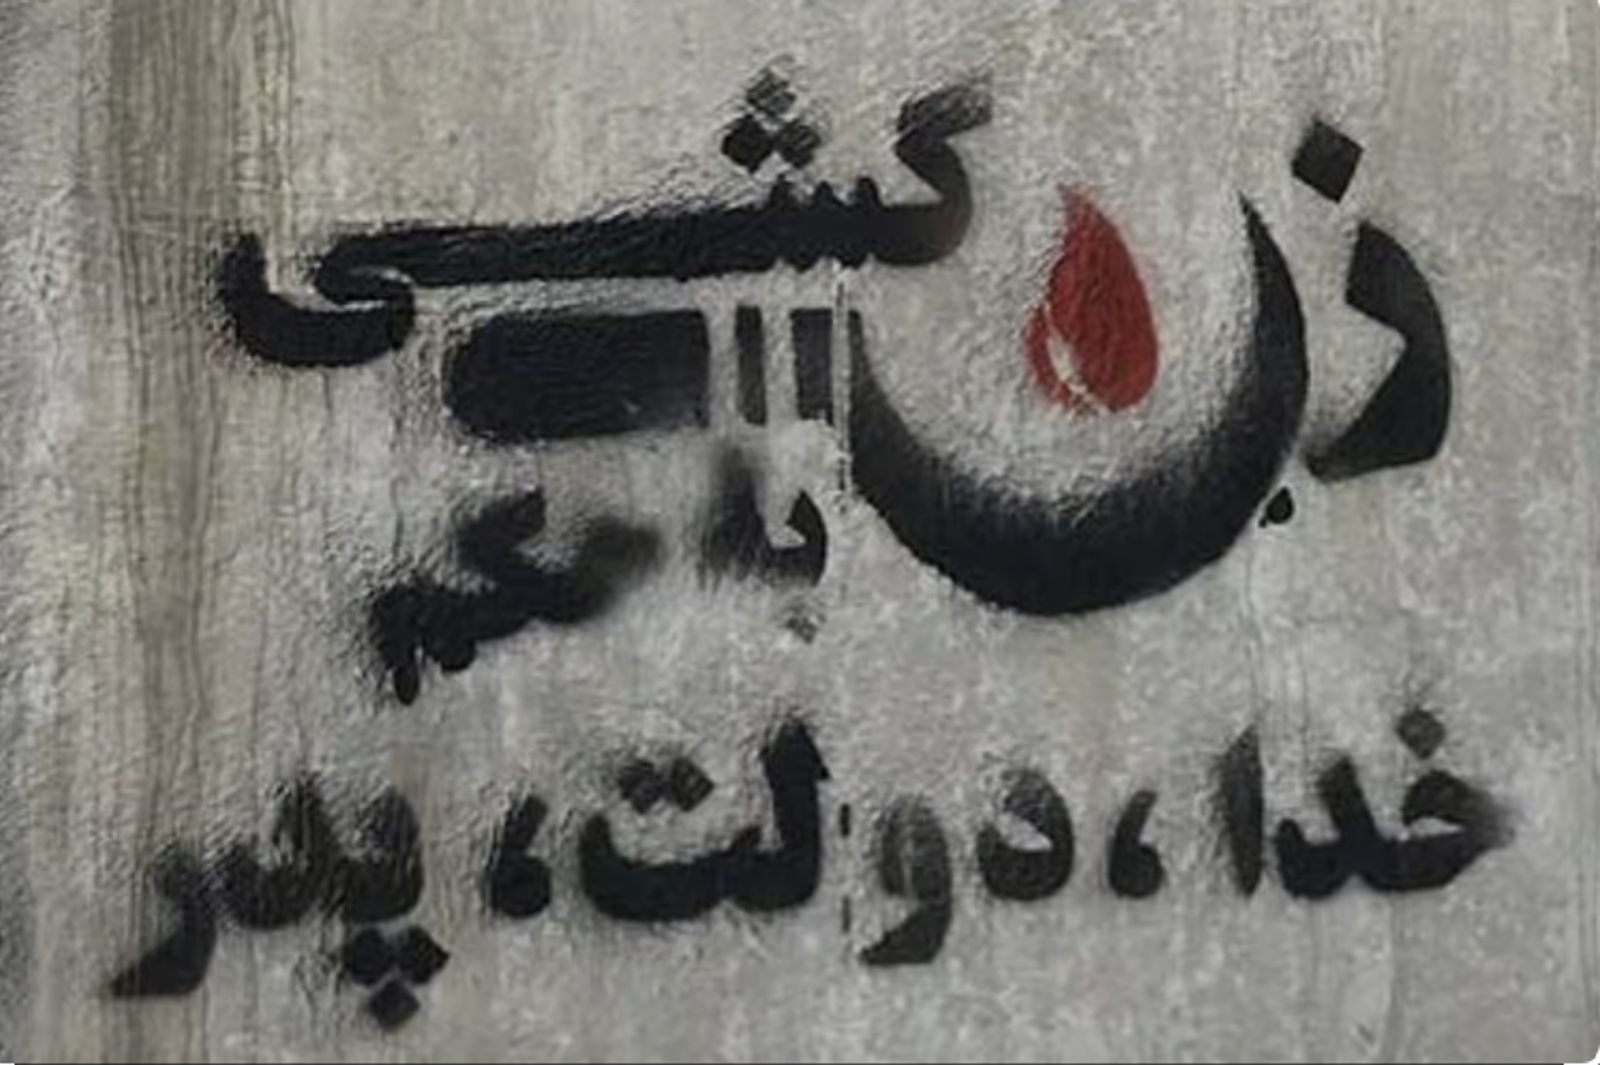 زن‌کشی
با حکم
خدا، دولت، پدر